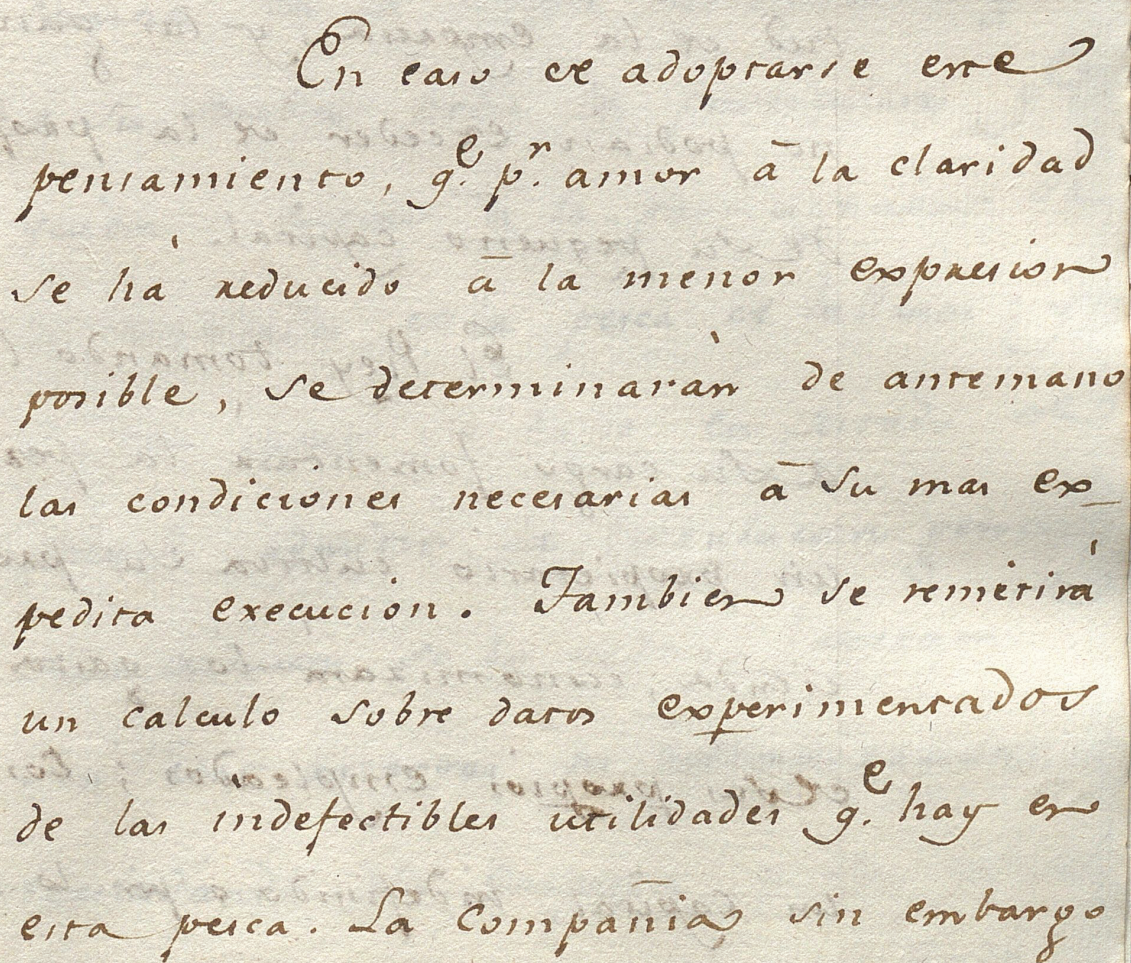 En caso de adoptarse este
pensamiento, q.e p.r amor â la claridad
se há reducido â la menor expresion
posible, se determinarán de antemano
las condiciones necesarias â su mas ex_
pedita execucion. Tambien se remitirá
un calculo sobre datos experimentados
de las indefectibles utilidades q.e hay en
esta pesca. La Compañia sin embargo